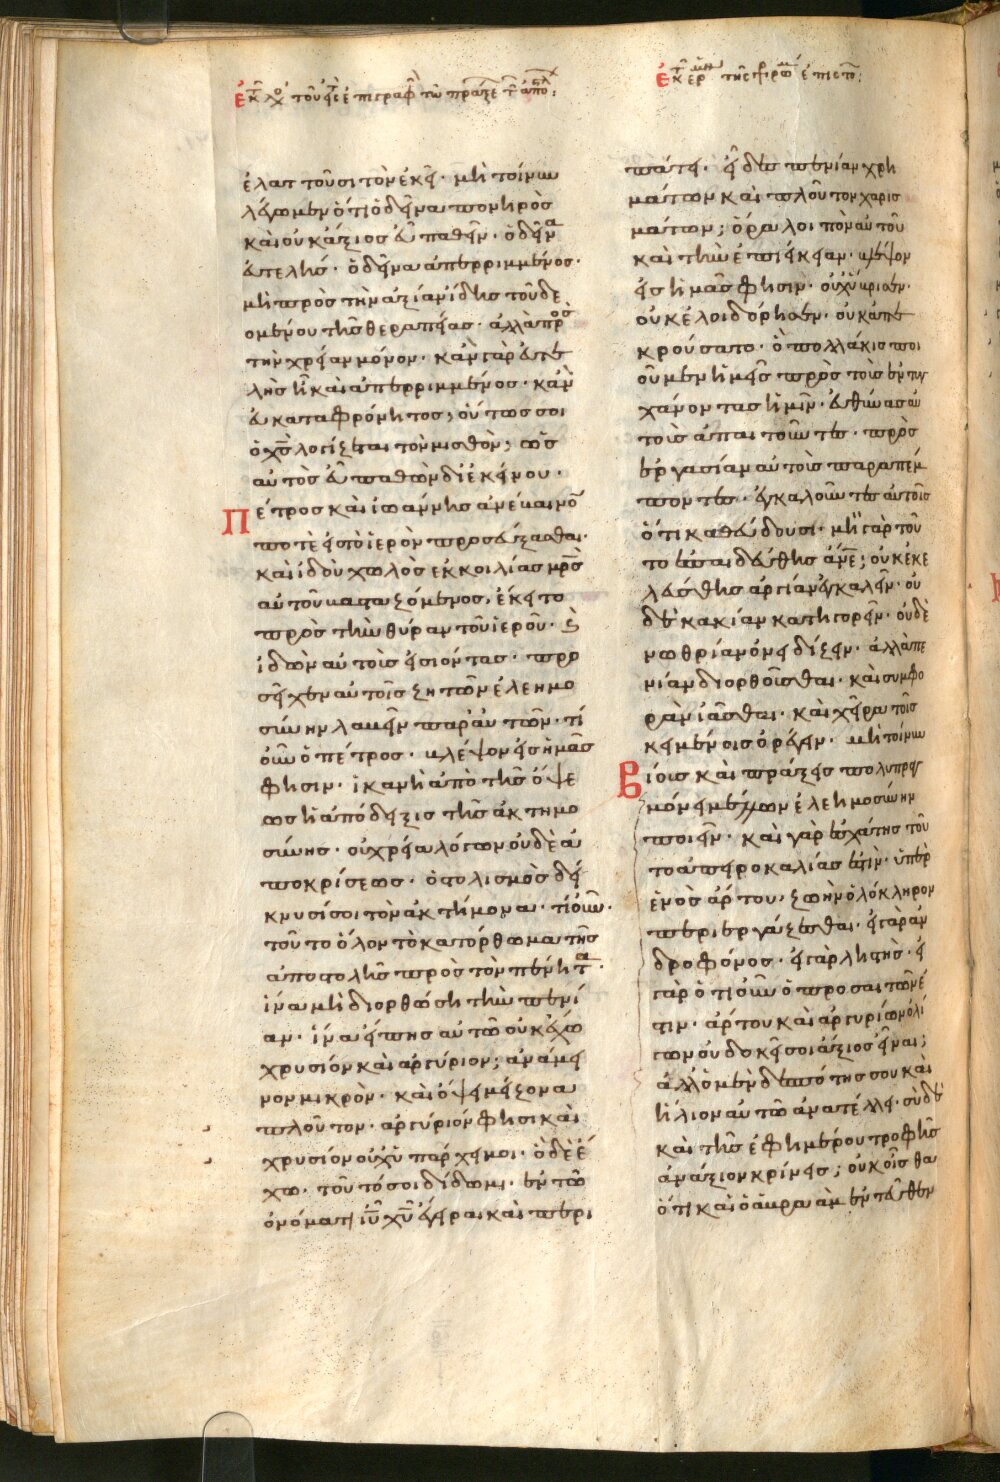 ἐκ τοῦ λόγου τοῦ εἰς τὴν ἐπιγραφὴν τῶν πράξεων τῶν ἀποστόλων:
ἔλαττοῦσι τὸν ἐκεῖ· μὴ τοίνυν
λέγωμεν ὅτι ὁ δεῖνα πονηρὸς
καὶ οὐκ ἄξιος εὖ παθεῖν· ὁ δεῖνα
εὐτελής· ὁ δεῖνα ἀπερριμμένος·
μὴ πρὸς τὴν ἀξίαν ἴδῃς τοῦ δε
ομένου τῆς θεραπείας· ἀλλὰ πρὸς
τὴν χρείαν μόνον· κἂν γὰρ εὐτε
λὴς ᾖ καὶ ἀπερριμμένος· κἂν
εὐκαταφρόνητος· οὕτως σοι
ὁ χς λογίζεται τὸν μισθὸν· ὡς
αὐτὸς εὖ παθὼν δι ἐκείνου·
Πέτρος καὶ ἰωάννης ἀνέβαινόν
ποτὲ εἰς τὸ ἱερὸν προσεύξασθαι·
καὶ ἰδοὺ χωλὸς ἐκ κοιλίας μρς
αὐτοῦ βασταζόμενος, ἔκειτο
πρὸς τὴν θύραν τοῦ ἱεροῦ· καὶ
ἰδὼν αὐτοὺς εἰσιόντας· προ
σεῖχεν αὐτοῖς ζητῶν ἐλεημο
σύνην λαβεῖν παρ' αὐτῶν· τί
οὖν ὁ πέτρος· βλέψον εἰς ἡμᾶς
φησιν· ἱκανὴ ἀπὸ τῆς ὄψε
ως ἡ ἀπόδειξις τῆς ἀκτημο
σύνης· οὐ χρεία λόγων οὐδὲ ἀ
ποκρίσεως· ὁ στολισμὸς δεί
κνυσί σοι τὸν ἀκτήμονα· τί οὖν·
τοῦτο ὅλον τὸ κατόρθωμα τῆς
ἀποστολῆς πρὸς τὸν πένητα·
ἵνα μὴ διορθώσῃ τὴν πενί
αν· ἵνα εἴπῃς αὐτῷ οὐκ ἔχω
χρυσίον καὶ ἀργύριον; ἀνάμει
νον μικρὸν· καὶ ὄψει μείζονα
πλοῦτον· ἀργύριόν φησι καὶ
χρυσίον οὐχ ὑπάρχει μοι· ὁ δὲ ἔ
χω· τοῦτό σοι δίδωμι· ἐν τῷ
ὀνόματι ιυ χυ ἔγειραι καὶ περι
πάτει· εἶδες πενίαν χρη
μάτων καὶ πλοῦτον χαρισ
μάτων; ὅρα λοιπὸν αὐτοῦ
καὶ τὴν ἐπιείκειαν· βλέψον
εἰς ἡμᾶς φησιν· οὐχ ὕβρισεν·
οὐκ ἐλοιδόρησεν· οὐκ ἀπε
κρούσατο· ὃ πολλάκις ποι
οῦμεν ἡμεῖς πρὸς τοὺς ἐντυγ
χάνοντας ἡμῖν· εὐθύνας αὐ
τοὺς ἀπαιτοῦντες· πρὸς
ἐργασίαν αὐτοὺς παραπέμ
ποντες· ἐγκαλοῦντες αὐτοῖς
ὅτι καθεύδουσι· μὴ γὰρ τοῦ
το ἐπαιδεύθης ἄνε; οὐκ ἐκε
λεύσθης ἀργίαν ἐγκαλεῖν· οὐ
δὲ κακίαν κατηγορεῖν· οὐδὲ
νωθρίαν ὀνειδίζειν· ἀλλὰ πε
νίαν διορθοῦσθαι· καὶ συμφο
ρὰν ἰᾶσθαι· καὶ χεῖρα τοῖς
κειμένοις ὀρέγειν· μὴ τοίνυν
Βίοις καὶ πράξεις πολυπραγ
μόνει μέλλων ἐλεημοσύνην
ποιεῖν· καὶ γὰρ ἐσχάτης τοῦ
το ἀπειροκαλίας ἐστὶν· ὑπὲρ
ἑνὸς ἄρτου, ζωὴν ὁλόκληρον
περιεργάζεσθαι· εἰ γὰρ ἀν
δροφόνος· εἰ γὰρ ληστὴς· εἰ
γὰρ ὁτιοῦν ὁ προσαιτῶν ἐ
στιν· ἄρτου καὶ ἀργυρίων ὀλί
γων οὐ δοκεῖ σοι ἄξιος εἶναι;
ἀλλ' ὁ μὲν δεσπότης σου καὶ
ἥλιον αὐτῷ ἀνατέλλει· σὺ δὲ
καὶ τῆς ἐφημέρου τροφῆς
ἀνάξιον κρίνεις; οὐκ οἶσθα
ὅτι καὶ ὁ ἀβραὰμ ἐντεῦθεν